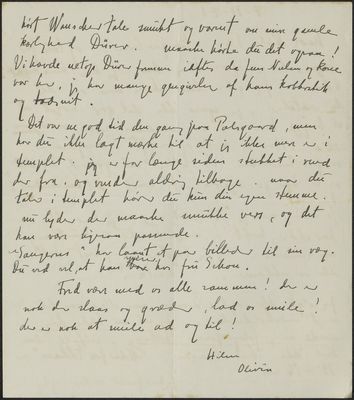 hørt Wanscher tale smukt og varmt om min gamle
kærlighed Dürer. maaske hørte du det ogsaa!
Vi havde netop Dürer fremme iaftes da fru Nielsen og Kone
var her, jeg har mange gengivelser af hans Kobberstik
og træsnit.
Det var en god tid den gang paa Palsgaard, men
har du ikke lagt mærke til at jeg ikke mere er i
templet. jeg er for længe siden stukket i rend
der fra, og vender aldrig tilbage. naar du
taler i templet hører du kun din egen stemme.
nu lyder der maaske smukke vers, og det
kan være ligesaa passende.
"Sangerens" har laant et par billeder til sin væg.
Du ved vel, at han bor hos frü Schou.
Fred være med os alle sammen! der er
nok der slaas og græder, lad os smile!
der er nok at smile ad og til!
Hilsen
Olivia